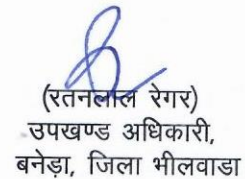 (रतनलाल रेगर)
उपखण्ड अधिकारी,
बनेड़ा, जिला भीलवाडा